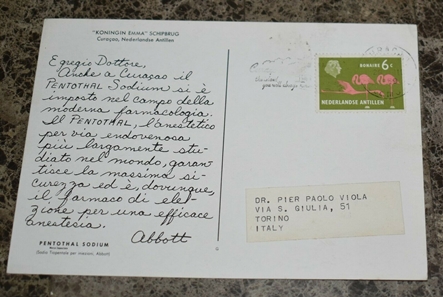 "KONINGIN EMMA" SCHIPBRUG
Curaçao, Nederlandse Antillen
Egregio Dottore,
Anche a Curaçao il
PENTOTHAL Sodium si è
imposto nel campo della
moderna farmacologia.
Il PENTOTHAL, l'anestetico
per via endovenosa
più largamente stu-
diato nel mondo, garan
tisce la massima si-
curezza ed è, dovunque,
il farmaco di ele-
zione per una efficace
anestesia.
Abbott
PENTOTHAL SODIUM
BONAIRE 6 c
NEDERLANDSE ANTILLEN
DR. PIER PAOLO VIOLA
VIA S. GIULIA, 51
TORINO
ITALY